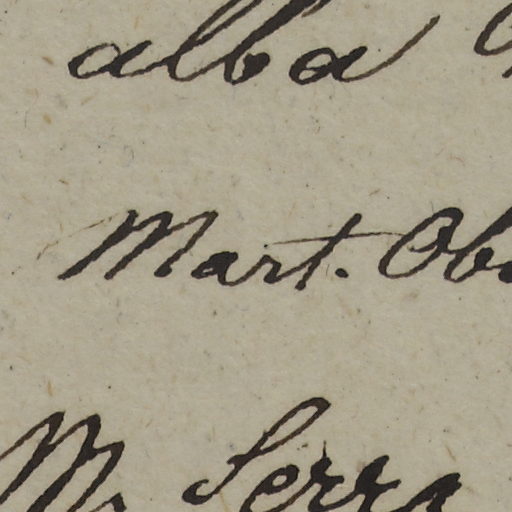 alba
Mart. Ob
Serra